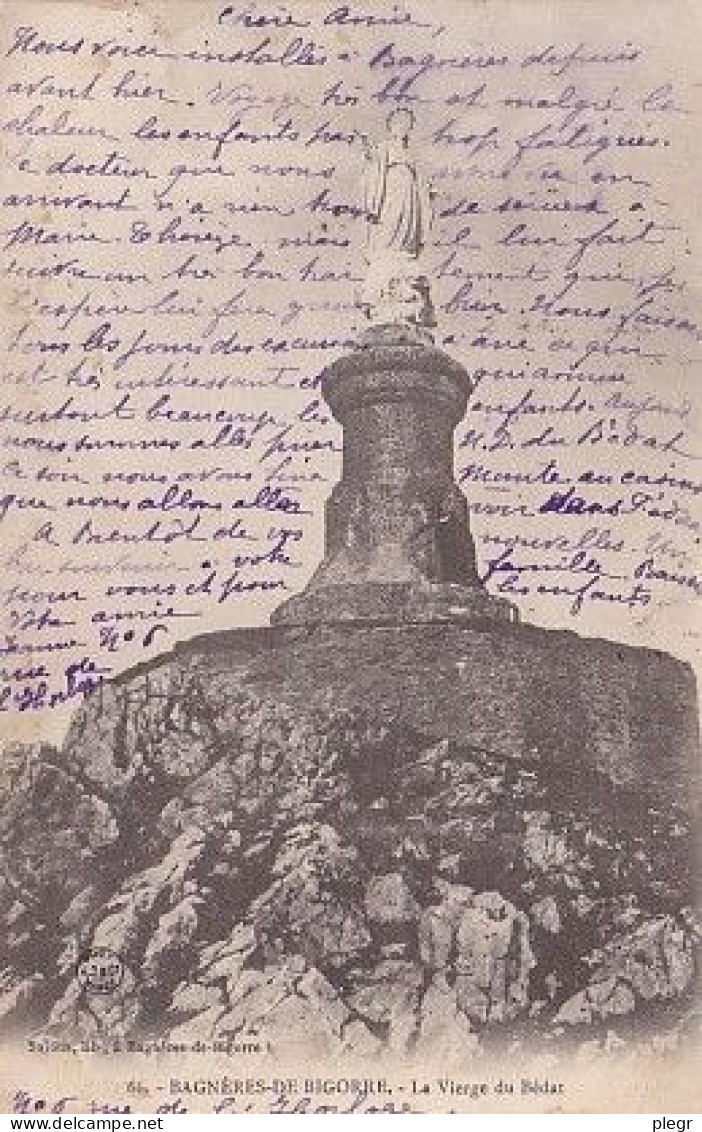 Chère Amie,
Nous voici installés à Bagnères depuis
avant hier. Voyage très bon et malgré la
chaleur les enfants pas trop fatigués.
Le docteur que nous en
arrivant n'a rien trouvé de sérieux à
Marie Thérèze, mais il lui fait
suivre un très bon traitement qui
j'espère lui fera grand bien. Nous faisons
tous les jours des excursions à âne ce qui
est très intéressant et qui amuse
surtout beaucoup les enfants.
nous sommes allés pour N. D. du Bédat
ce soir nous avons au casino
que nous allons aller voir dans
A bientôt de vos nouvelles. Un
bon souvenir à votre famille. Baisers
pour vous et pour les enfants
Votre amie
No 6
rue de
l'Horloge
Bagnères-de-Bigorre
64. - BAGNÈRES-DE-BIGORRE. - La Vierge du Bédat
No 6 rue de l'Horloge
plegr